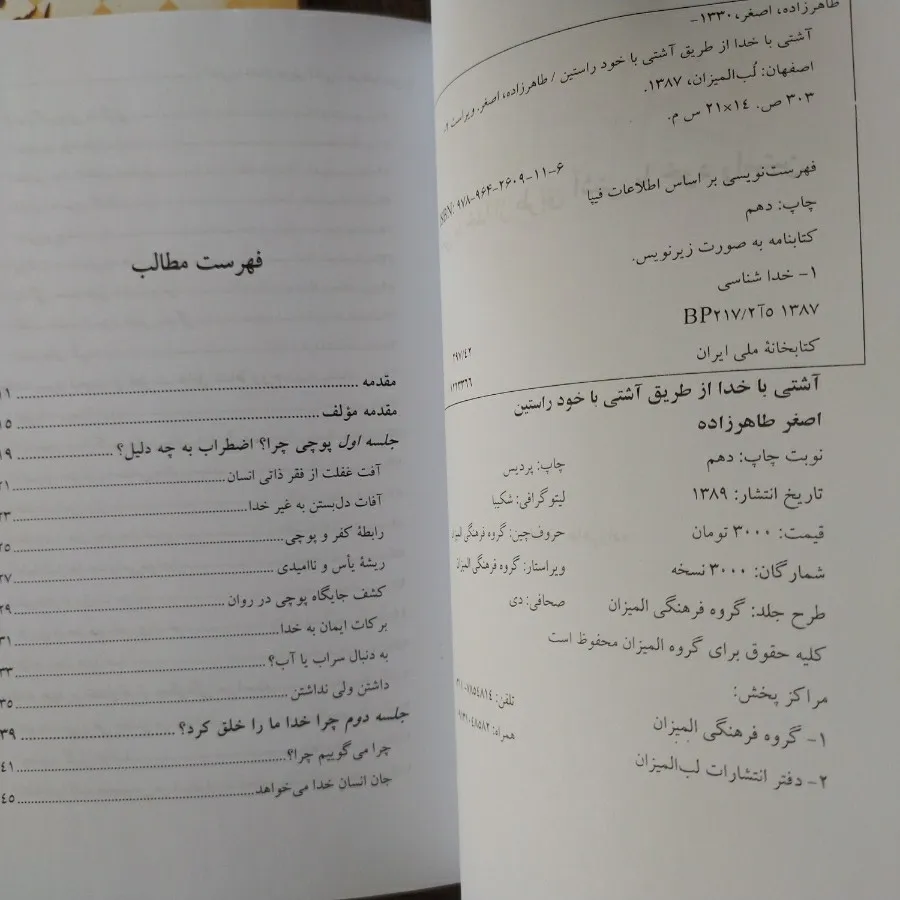 طاهرزاده، اصغر، ۱۳۳۰-
آشتی با خدا از طریق آشتی با خود راستین / طاهرزاده، اصغر. ویراست ۲.
اصفهان: لُب‌المیزان، ۱۳۸۷.
۳۰۳ ص. ۱۴×۲۱ س م.
ISBN: ۹۷۸-۹۶۴-۲۶۰۹-۱۱-۶
فهرست‌نویسی بر اساس اطلاعات فیپا
چاپ: دهم
کتابنامه به صورت زیرنویس.
۱- خدا شناسی
BP۲۱۷/۲آ۵ ۱۳۸۷
۲۹۷/۴۲
کتابخانهٔ ملی ایران
آشتی با خدا از طریق آشتی با خود راستین
اصغر طاهرزاده
نوبت چاپ: دهم
چاپ: پردیس
تاریخ انتشار: ۱۳۸۹
لیتوگرافی: شکیبا
قیمت: ۳۰۰۰ تومان
حروف‌چین: گروه فرهنگی المیزان
شمارگان: ۳۰۰۰ نسخه
ویراستار: گروه فرهنگی المیزان
طرح جلد: گروه فرهنگی المیزان
صحافی: دی
کلیه حقوق برای گروه المیزان محفوظ است
مراکز پخش:
۱- گروه فرهنگی المیزان
تلفن: ۷۸۵۴۸۱۴
۲- دفتر انتشارات لب‌المیزان
همراه:
فهرست مطالب
مقدمه ........ ۱۱
مقدمه مؤلف ........ ۱۵
جلسه اول پوچی چرا؟ اضطراب به چه دلیل؟ ........ ۱۹
آفت غفلت از فقر ذاتی انسان ........ ۲۱
آفات دل‌بستن به غیر خدا ........ ۲۳
رابطهٔ کفر و پوچی ........ ۲۵
ریشهٔ یأس و ناامیدی ........ ۲۷
کشف جایگاه پوچی در روان ........ ۲۹
برکات ایمان به خدا ........ ۳۱
به دنبال سراب یا آب؟ ........ ۳۳
داشتن ولی نداشتن ........ ۳۵
جلسه دوم چرا خدا ما را خلق کرد؟ ........ ۳۹
چرا می‌گوییم چرا؟ ........ ۴۱
جان انسانِ خدا می‌خواهد ........ ۴۵